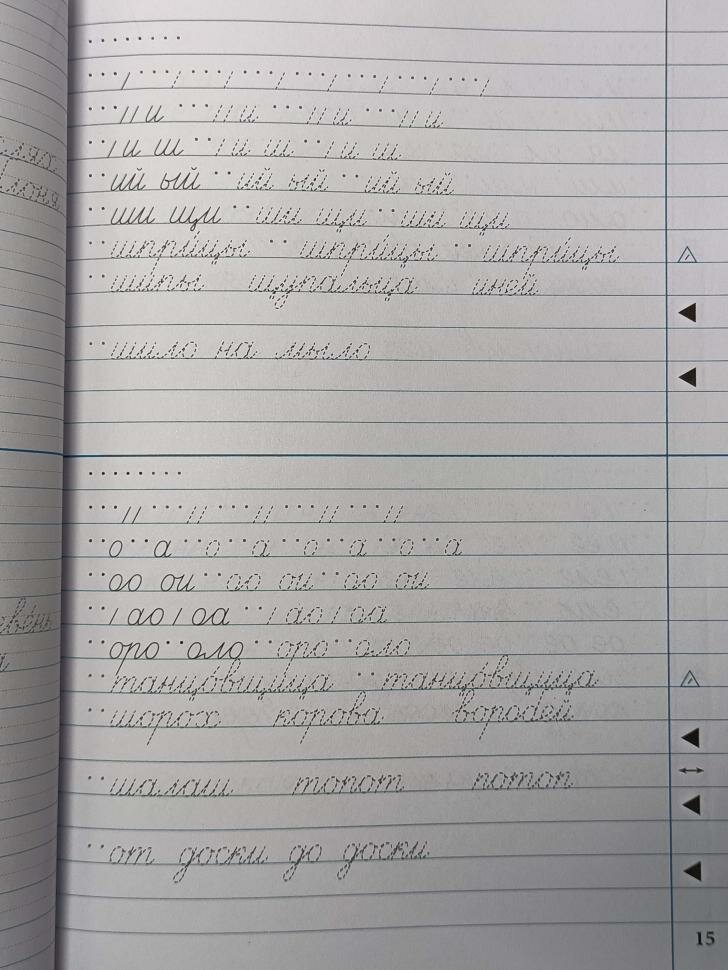 и
и ш и ш и ш
ий ый ий ый ий ый
ши щи ши щи ши щи
шпри́цы шпри́цы шпри́цы
шипы щупальца иней
шило на мыло
о а о а о а о а
ао ои ао ои ао ои
ао оа ао оа
оро оло оро оло
танцо́вщица танцо́вщица
шорох корова воробей
шалаш топот потоп
от доски до доски
15